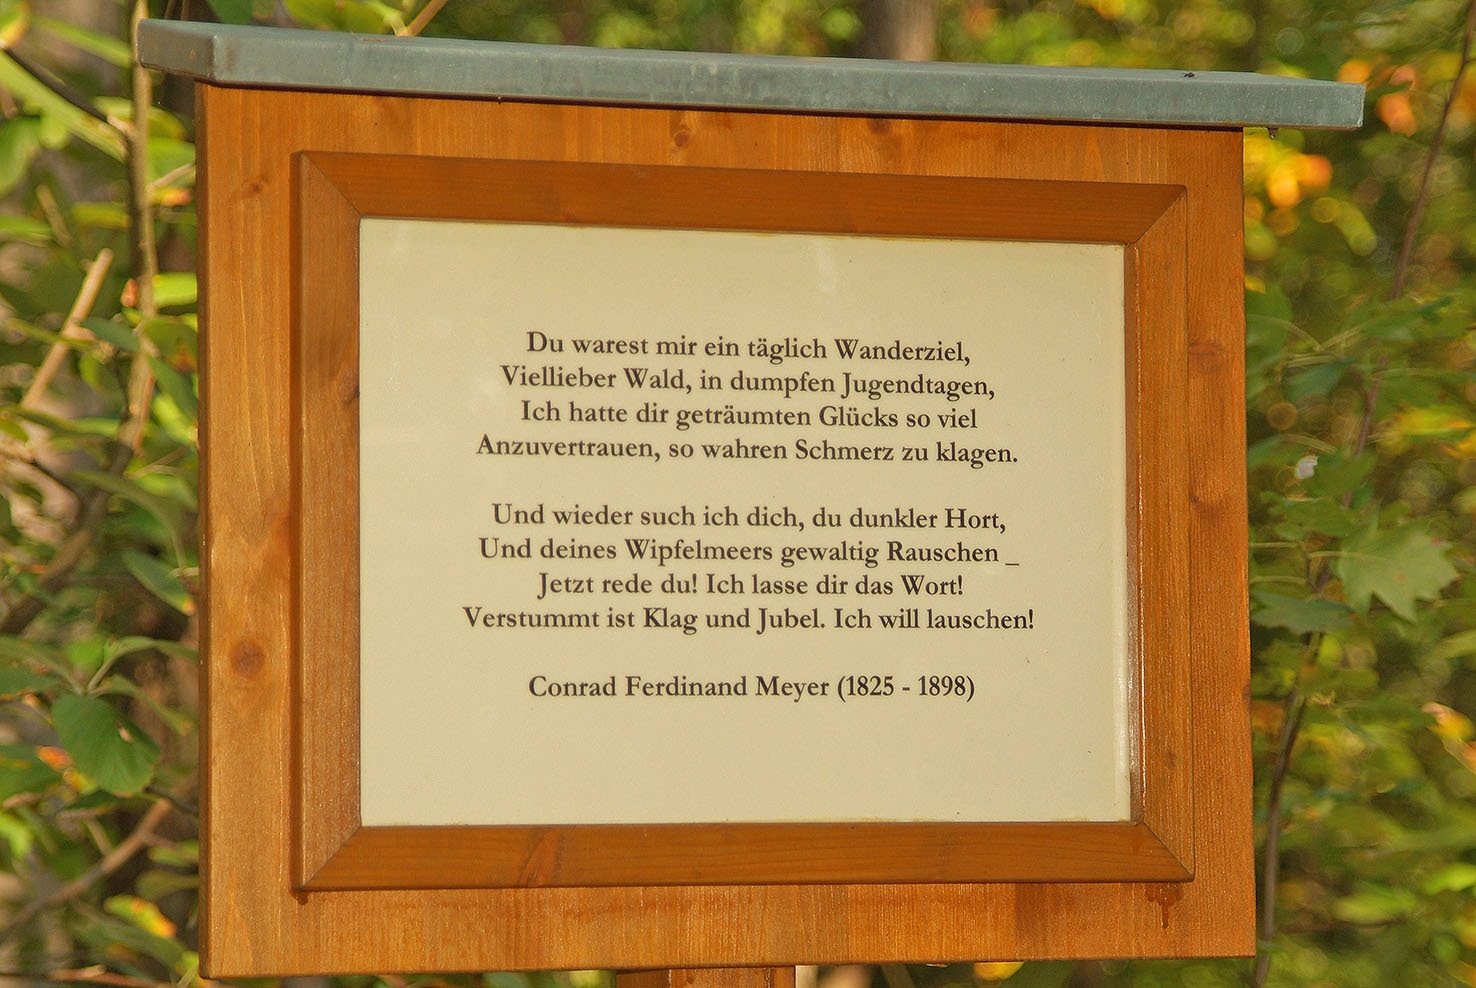 Du warest mir ein täglich Wanderziel,
Viellieber Wald, in dumpfen Jugendtagen,
Ich hatte dir geträumten Glücks so viel
Anzuvertrauen, so wahren Schmerz zu klagen.
Und wieder such ich dich, du dunkler Hort,
Und deines Wipfelmeers gewaltig Rauschen _
Jetzt rede du! Ich lasse dir das Wort!
Verstummt ist Klag und Jubel. Ich will lauschen!
Conrad Ferdinand Meyer (1825 - 1898)